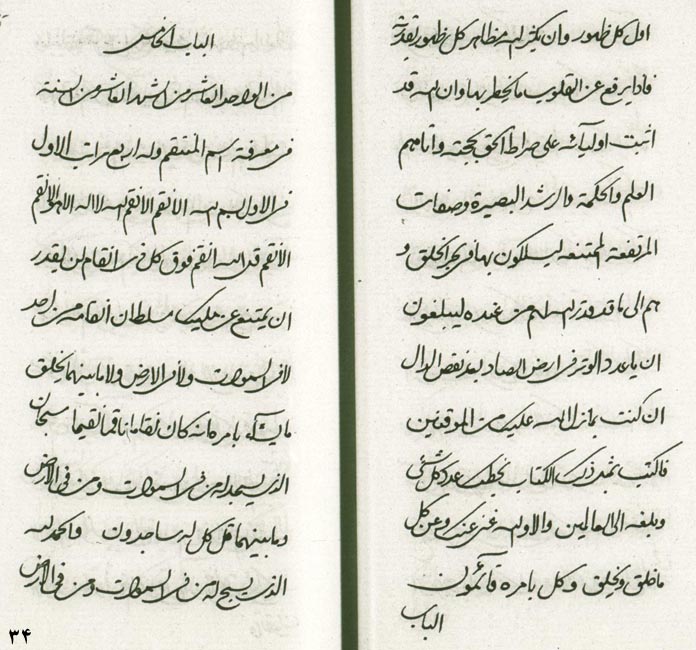 اول كل ظهور وان يكثر الله مظاهر كل ظهور بقدرته
فاذا يرفع عن القلوب ما يخطر بها وان الله قد
اثبت اوليائه على صراط الحق بحجته واتاهم
العلم والحكمة والرشد البصيرة وصفات
المرتفعة الممتنعة ليسلكون بها فى بحر الخلق و
هم الى ما قد قدر الله لهم من عنده ليبلغون
ان يا عدد الوتر فى ارض الصاد بعد نقص الدال
ان كنت بما نزل الله عليك من الموقنين
فاكتب بمثل ذلك الكتاب بخطك عدد كل شئ
وبلغه الى العالمين والا والله غنى عنك وعن كل
ما خلق ويخلق وكل بامره قائمون
الباب
الباب الخامس
من الواحد العاشر من الشهر العاشر من السنة
فى معرفة اسم المنتقم وله اربع مراتب الاول
فى الاول بسم الله الانقم الانقم الله لا اله الا هو الانقم
الانقم قل الله انقم فوق كل ذى انقام لن يقدر
ان يمتنع عن مليك سلطان انقامه من احد
لا فى السموات ولا فى الارض ولا ما بينهما يخلق
ما يشاء بامره انه كان نقاما ناقما نقيما سبحان
الذى يسجد له من فى السموات ومن فى الارض
وما بينهما قل كل له ساجدون والحمد لله
الذى يسبح له من فى السموات ومن فى الارض
۳۴